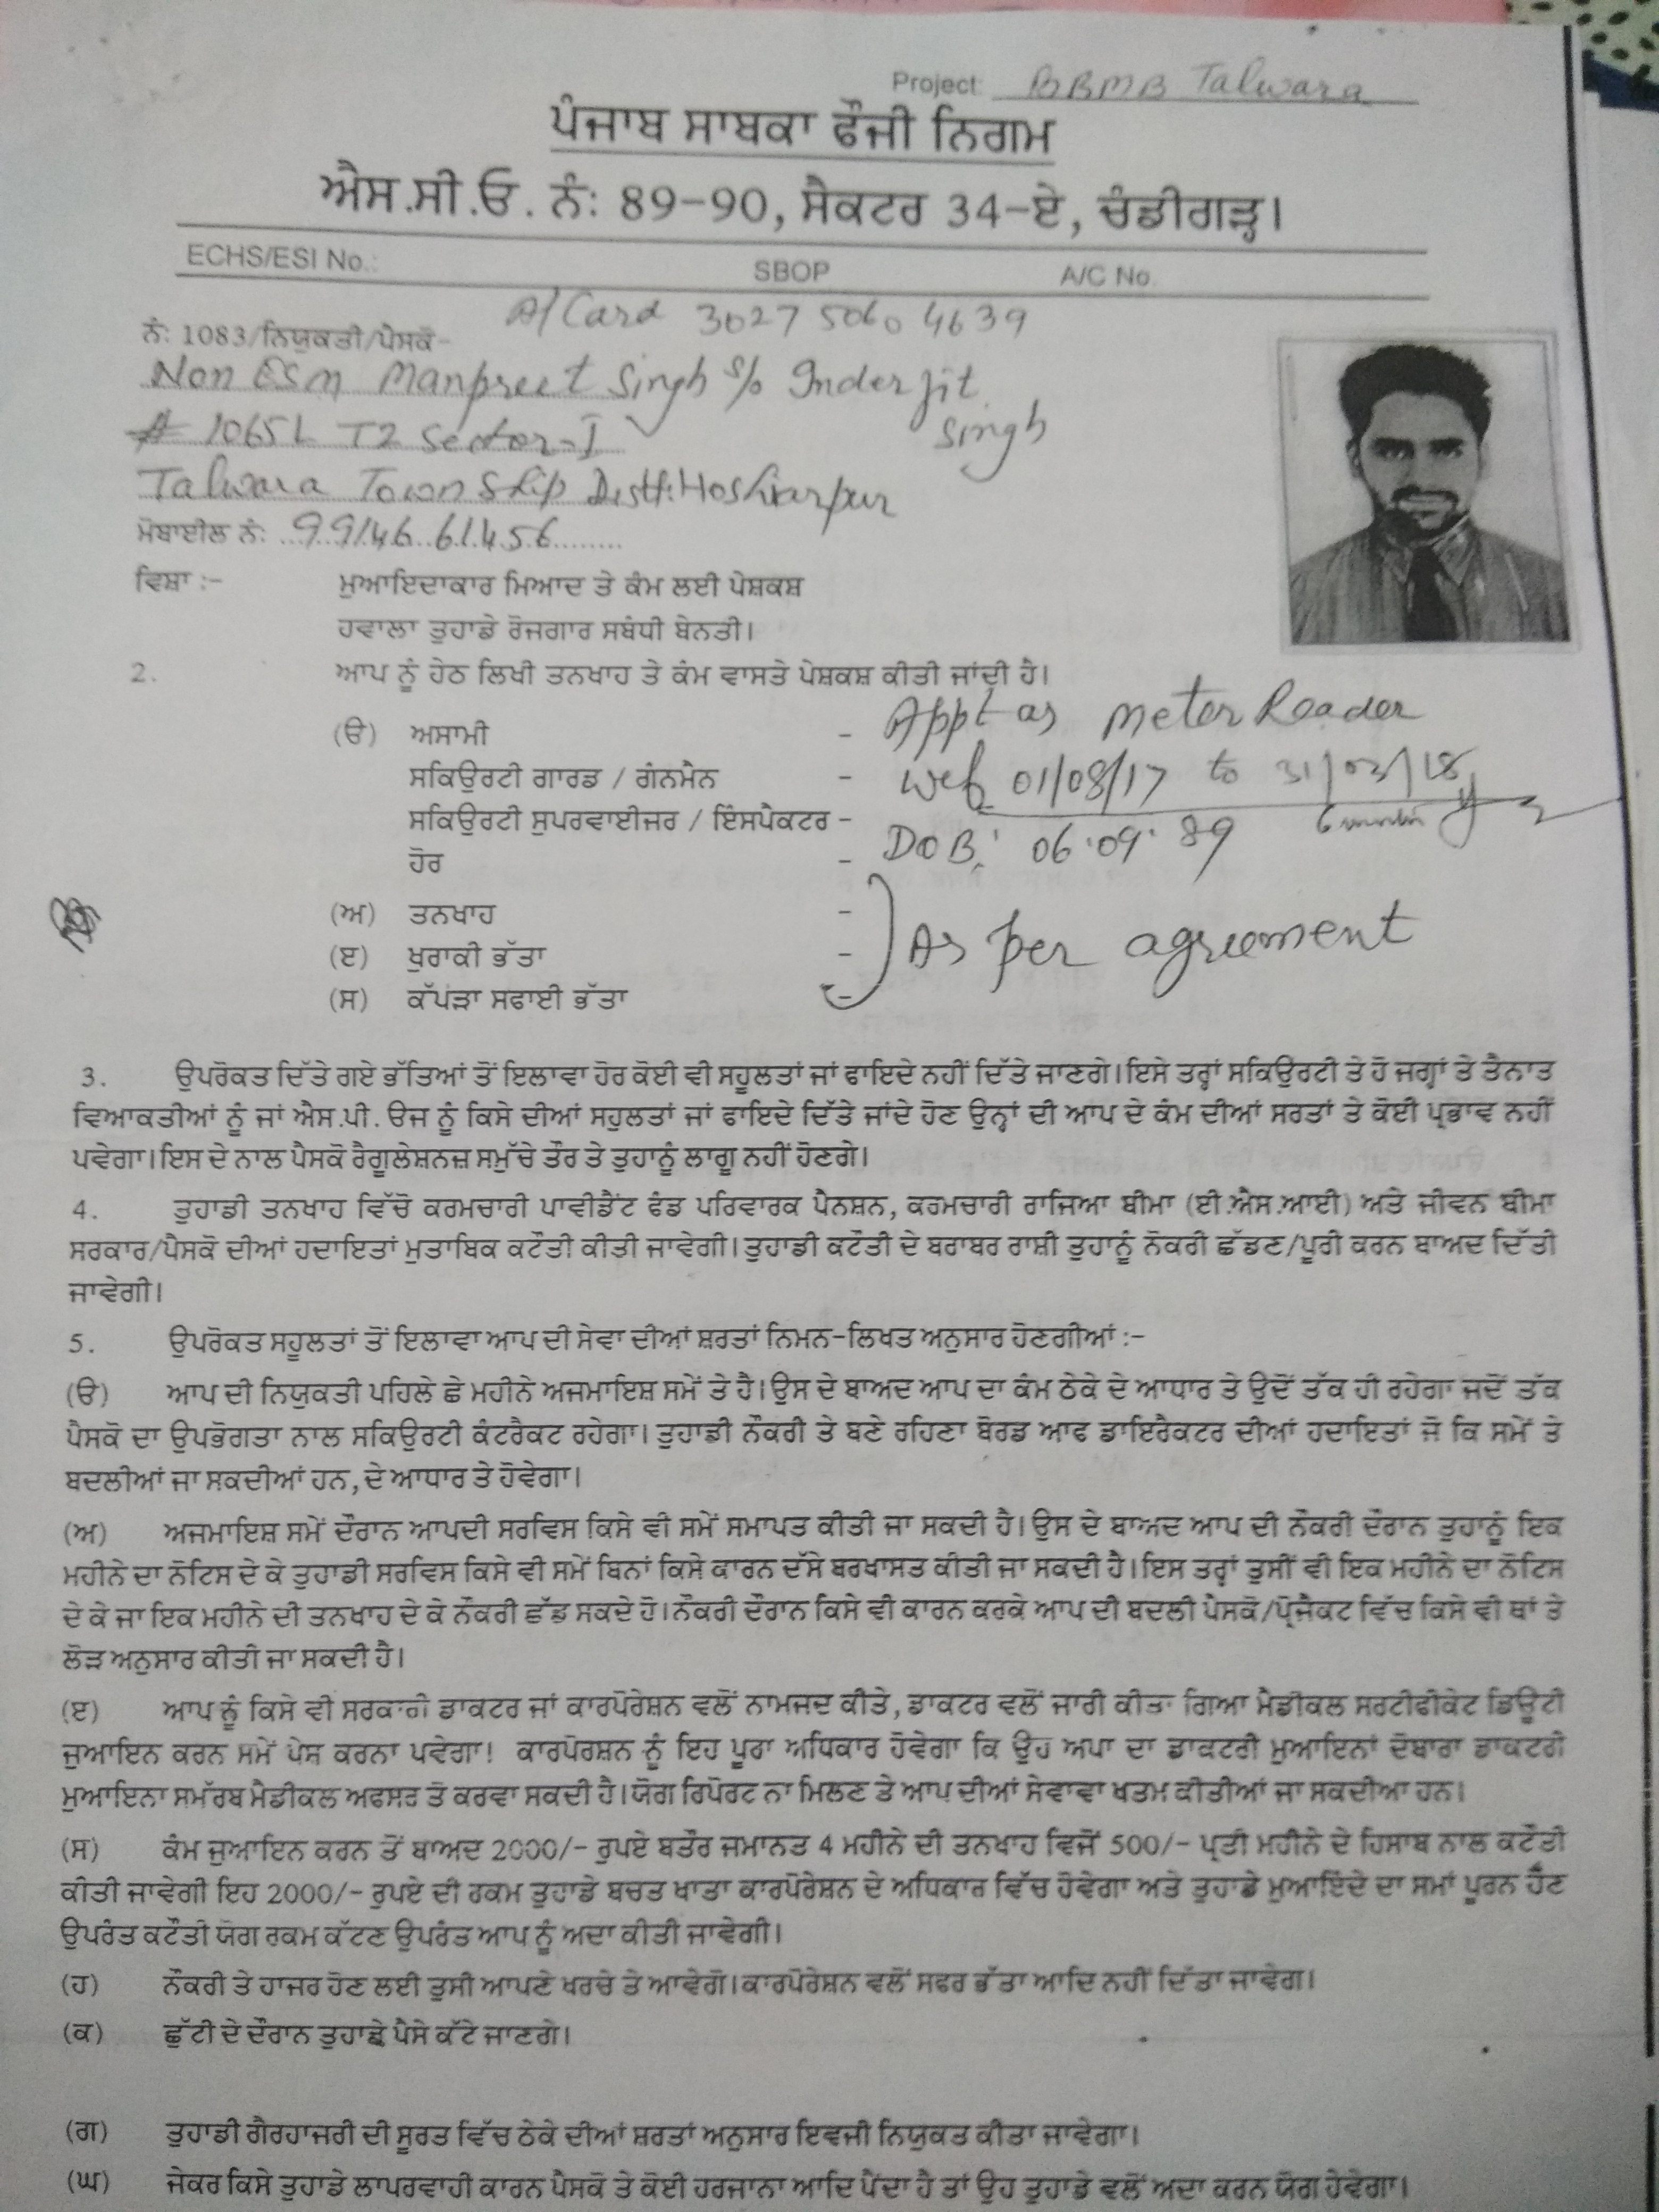 Project: BBMB Talwara
ਪੰਜਾਬ ਸਾਬਕਾ ਫੌਜੀ ਨਿਗਮ
ਐਸ.ਸੀ.ਓ. ਨੰ: 89-90, ਸੈਕਟਰ 34-ਏ, ਚੰਡੀਗੜ੍ਹ।
ECHS/ESI No.: SBOP A/C No.
A/Card 3027 5060 4639
ਨੰ: 1083/ਨਿਯੁਕਤੀ/ਪੈਸਕੋ-
Non ESM Manpreet Singh s/o Inderjit Singh
# 1065L T2 Sector-I
Talwara Town Ship Distt: Hoshiarpur
ਮੋਬਾਈਲ ਨੰ: 99146 61456
ਵਿਸ਼ਾ :- ਮੁਆਇਦਾਕਾਰ ਮਿਆਦ ਤੇ ਕੰਮ ਲਈ ਪੇਸ਼ਕਸ਼
ਹਵਾਲਾ ਤੁਹਾਡੇ ਰੋਜਗਾਰ ਸਬੰਧੀ ਬੇਨਤੀ।
2. ਆਪ ਨੂੰ ਹੇਠ ਲਿਖੀ ਤਨਖਾਹ ਤੇ ਕੰਮ ਵਾਸਤੇ ਪੇਸ਼ਕਸ਼ ਕੀਤੀ ਜਾਂਦੀ ਹੈ।
(ੳ) ਅਸਾਮੀ - Appt as Meter Reader
ਸਕਿਉਰਟੀ ਗਾਰਡ / ਗੰਨਮੈਨ - wef 01/08/17 to 31/03/18
ਸਕਿਉਰਟੀ ਸੁਪਰਵਾਈਜਰ / ਇੰਸਪੈਕਟਰ -
ਹੋਰ - DOB: 06.09.89
(ਅ) ਤਨਖਾਹ -
(ੲ) ਖੁਰਾਕੀ ਭੱਤਾ - As per agreement
(ਸ) ਕੱਪੜਾ ਸਫਾਈ ਭੱਤਾ -
3. ਉਪਰੋਕਤ ਦਿੱਤੇ ਗਏ ਭੱਤਿਆਂ ਤੋਂ ਇਲਾਵਾ ਹੋਰ ਕੋਈ ਵੀ ਸਹੂਲਤਾਂ ਜਾਂ ਫਾਇਦੇ ਨਹੀਂ ਦਿੱਤੇ ਜਾਣਗੇ। ਇਸੇ ਤਰ੍ਹਾਂ ਸਕਿਉਰਟੀ ਤੇ ਹੋ ਜਗ੍ਹਾਂ ਤੇ ਤੈਨਾਤ
ਵਿਆਕਤੀਆਂ ਨੂੰ ਜਾਂ ਐਸ.ਪੀ. ੳਜ ਨੂੰ ਕਿਸੇ ਦੀਆਂ ਸਹੁਲਤਾਂ ਜਾਂ ਫਾਇਦੇ ਦਿੱਤੇ ਜਾਂਦੇ ਹੋਣ ਉਨ੍ਹਾਂ ਦੀ ਆਪ ਦੇ ਕੰਮ ਦੀਆਂ ਸਰਤਾਂ ਤੇ ਕੋਈ ਪ੍ਰਭਾਵ ਨਹੀਂ
ਪਵੇਗਾ। ਇਸ ਦੇ ਨਾਲ ਪੈਸਕੋ ਰੈਗੂਲੇਸ਼ਨਜ਼ ਸਮੁੱਚੇ ਤੌਰ ਤੇ ਤੁਹਾਨੂੰ ਲਾਗੂ ਨਹੀਂ ਹੋਣਗੇ।
4. ਤੁਹਾਡੀ ਤਨਖਾਹ ਵਿੱਚੋ ਕਰਮਚਾਰੀ ਪਾਵੀਡੈਂਟ ਫੰਡ ਪਰਿਵਾਰਕ ਪੈਨਸ਼ਨ, ਕਰਮਚਾਰੀ ਰਾਜਿਆ ਬੀਮਾ (ਈ.ਐਸ.ਆਈ) ਅਤੇ ਜੀਵਨ ਬੀਮਾ
ਸਰਕਾਰ/ਪੈਸਕੋ ਦੀਆਂ ਹਦਾਇਤਾਂ ਮੁਤਾਬਿਕ ਕਟੌਤੀ ਕੀਤੀ ਜਾਵੇਗੀ। ਤੁਹਾਡੀ ਕਟੌਤੀ ਦੇ ਬਰਾਬਰ ਰਾਸ਼ੀ ਤੁਹਾਨੂੰ ਨੋਕਰੀ ਛੱਡਣ/ਪੂਰੀ ਕਰਨ ਬਾਅਦ ਦਿੱਤੀ
ਜਾਵੇਗੀ।
5. ਉਪਰੋਕਤ ਸਹੂਲਤਾਂ ਤੋਂ ਇਲਾਵਾ ਆਪ ਦੀ ਸੇਵਾ ਦੀਆਂ ਸ਼ਰਤਾਂ ਨਿਮਨ-ਲਿਖਤ ਅਨੁਸਾਰ ਹੋਣਗੀਆਂ :-
(ੳ) ਆਪ ਦੀ ਨਿਯੁਕਤੀ ਪਹਿਲੇ ਛੇ ਮਹੀਨੇ ਅਜਮਾਇਸ਼ ਸਮੇਂ ਤੇ ਹੈ। ਉਸ ਦੇ ਬਾਅਦ ਆਪ ਦਾ ਕੰਮ ਠੇਕੇ ਦੇ ਆਧਾਰ ਤੇ ਉਦੋਂ ਤੱਕ ਹੀ ਰਹੇਗਾ ਜਦੋਂ ਤੱਕ
ਪੈਸਕੋ ਦਾ ਉਪਭੋਗਤਾ ਨਾਲ ਸਕਿਉਰਟੀ ਕੰਟਰੈਕਟ ਰਹੇਗਾ। ਤੁਹਾਡੀ ਨੌਕਰੀ ਤੇ ਬਣੇ ਰਹਿਣਾ ਬੋਰਡ ਆਫ ਡਾਇਰੈਕਟਰ ਦੀਆਂ ਹਦਾਇਤਾਂ ਜੋ ਕਿ ਸਮੇਂ ਤੇ
ਬਦਲੀਆਂ ਜਾ ਸਕਦੀਆਂ ਹਨ, ਦੇ ਆਧਾਰ ਤੇ ਹੋਵੇਗਾ।
(ਅ) ਅਜਮਾਇਸ਼ ਸਮੇਂ ਦੌਰਾਨ ਆਪਦੀ ਸਰਵਿਸ ਕਿਸੇ ਵੀ ਸਮੇਂ ਸਮਾਪਤ ਕੀਤੀ ਜਾ ਸਕਦੀ ਹੈ। ਉਸ ਦੇ ਬਾਅਦ ਆਪ ਦੀ ਨੌਕਰੀ ਦੌਰਾਨ ਤੁਹਾਨੂੰ ਇਕ
ਮਹੀਨੇ ਦਾ ਨੋਟਿਸ ਦੇ ਕੇ ਤੁਹਾਡੀ ਸਰਵਿਸ ਕਿਸੇ ਵੀ ਸਮੇਂ ਬਿਨਾਂ ਕਿਸੇ ਕਾਰਨ ਦੱਸੇ ਬਰਖਾਸਤ ਕੀਤੀ ਜਾ ਸਕਦੀ ਹੈ। ਇਸ ਤਰ੍ਹਾਂ ਤੁਸੀਂ ਵੀ ਇਕ ਮਹੀਨੇ ਦਾ ਨੋਟਿਸ
ਦੇ ਕੇ ਜਾ ਇਕ ਮਹੀਨੇ ਦੀ ਤਨਖਾਹ ਦੇ ਕੇ ਨੌਕਰੀ ਛੱਡ ਸਕਦੇ ਹੋ। ਨੌਕਰੀ ਦੌਰਾਨ ਕਿਸੇ ਵੀ ਕਾਰਨ ਕਰਕੇ ਆਪ ਦੀ ਬਦਲੀ ਪੈਸਕੋ/ਪ੍ਰੋਜੈਕਟ ਵਿੱਚ ਕਿਸੇ ਵੀ ਥਾਂ ਤੇ
ਲੋੜ ਅਨੁਸਾਰ ਕੀਤੀ ਜਾ ਸਕਦੀ ਹੈ।
(ੲ) ਆਪ ਨੂੰ ਕਿਸੇ ਵੀ ਸਰਕਾਰੀ ਡਾਕਟਰ ਜਾਂ ਕਾਰਪੋਰੇਸ਼ਨ ਵਲੋਂ ਨਾਮਜਦ ਕੀਤੇ, ਡਾਕਟਰ ਵਲੋਂ ਜਾਰੀ ਕੀਤਾ ਗਿਆ ਮੈਡੀਕਲ ਸਰਟੀਫੀਕੇਟ ਡਿਊਟੀ
ਜੁਆਇਨ ਕਰਨ ਸਮੇਂ ਪੇਸ਼ ਕਰਨਾ ਪਵੇਗਾ! ਕਾਰਪੋਰਸ਼ਨ ਨੂੰ ਇਹ ਪੂਰਾ ਅਧਿਕਾਰ ਹੋਵੇਗਾ ਕਿ ਉਹ ਅਪਾ ਦਾ ਡਾਕਟਰੀ ਮੁਆਇਨਾਂ ਦੋਬਾਰਾ ਡਾਕਟਰੀ
ਮੁਆਇਨਾ ਸਮੱਰਬ ਮੈਡੀਕਲ ਅਫਸਰ ਤੋ ਕਰਵਾ ਸਕਦੀ ਹੈ। ਯੋਗ ਰਿਪੋਰਟ ਨਾ ਮਿਲਣ ਤੇ ਆਪ ਦੀਆਂ ਸੇਵਾਵਾ ਖਤਮ ਕੀਤੀਆਂ ਜਾ ਸਕਦੀਆ ਹਨ।
(ਸ) ਕੰਮ ਜੁਆਇਨ ਕਰਨ ਤੋਂ ਬਾਅਦ 2000/- ਰੁਪਏ ਬਤੌਰ ਜਮਾਨਤ 4 ਮਹੀਨੇ ਦੀ ਤਨਖਾਹ ਵਿਜੋਂ 500/- ਪ੍ਰਤੀ ਮਹੀਨੇ ਦੇ ਹਿਸਾਬ ਨਾਲ ਕਟੌਤੀ
ਕੀਤੀ ਜਾਵੇਗੀ ਇਹ 2000/- ਰੁਪਏ ਦੀ ਰਕਮ ਤੁਹਾਡੇ ਬਚਤ ਖਾਤਾ ਕਾਰਪੋਰੇਸ਼ਨ ਦੇ ਅਧਿਕਾਰ ਵਿੱਚ ਹੋਵੇਗਾ ਅਤੇ ਤੁਹਾਡੇ ਮੁਆਇੰਦੇ ਦਾ ਸਮਾਂ ਪੂਰਨ ਹੋਣ
ਉਪਰੰਤ ਕਟੌਤੀ ਯੋਗ ਰਕਮ ਕੱਟਣ ਉਪਰੰਤ ਆਪ ਨੂੰ ਅਦਾ ਕੀਤੀ ਜਾਵੇਗੀ।
(ਹ) ਨੌਕਰੀ ਤੇ ਹਾਜਰ ਹੋਣ ਲਈ ਤੁਸੀ ਆਪਣੇ ਖਰਚੇ ਤੇ ਆਵੇਗੋ। ਕਾਰਪੋਰੇਸ਼ਨ ਵਲੋਂ ਸਫਰ ਭੱਤਾ ਆਦਿ ਨਹੀਂ ਦਿੱਤਾ ਜਾਵੇਗ।
(ਕ) ਛੁੱਟੀ ਦੇ ਦੌਰਾਨ ਤੁਹਾਡੇ ਪੈਸੇ ਕੱਟੇ ਜਾਣਗੇ।
(ਗ) ਤੁਹਾਡੀ ਗੈਰਹਾਜਰੀ ਦੀ ਸੂਰਤ ਵਿੱਚ ਠੇਕੇ ਦੀਆਂ ਸ਼ਰਤਾਂ ਅਨੁਸਾਰ ਇਵਜੀ ਨਿਯੁਕਤ ਕੀਤਾ ਜਾਵੇਗਾ।
(ਘ) ਜੇਕਰ ਕਿਸੇ ਤੁਹਾਡੇ ਲਾਪਰਵਾਹੀ ਕਾਰਨ ਪੈਸਕੋ ਤੇ ਕੋਈ ਹਰਜਾਨਾ ਆਦਿ ਪੈਂਦਾ ਹੈ ਤਾਂ ਉਹ ਤੁਹਾਡੇ ਵਲੋਂ ਅਦਾ ਕਰਨ ਯੋਗ ਹੋਵੇਗਾ।